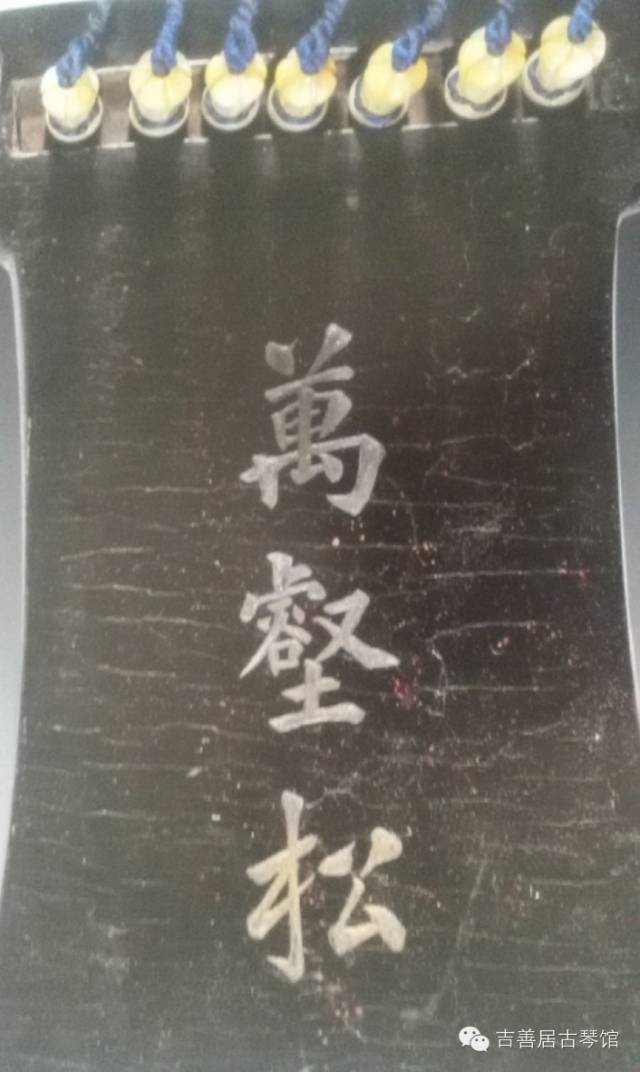 萬
壑
松
吉善居古琴馆